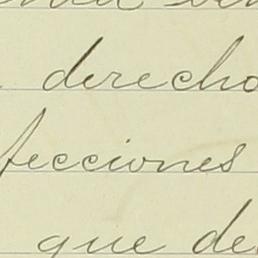 derecho
fecciones
que de